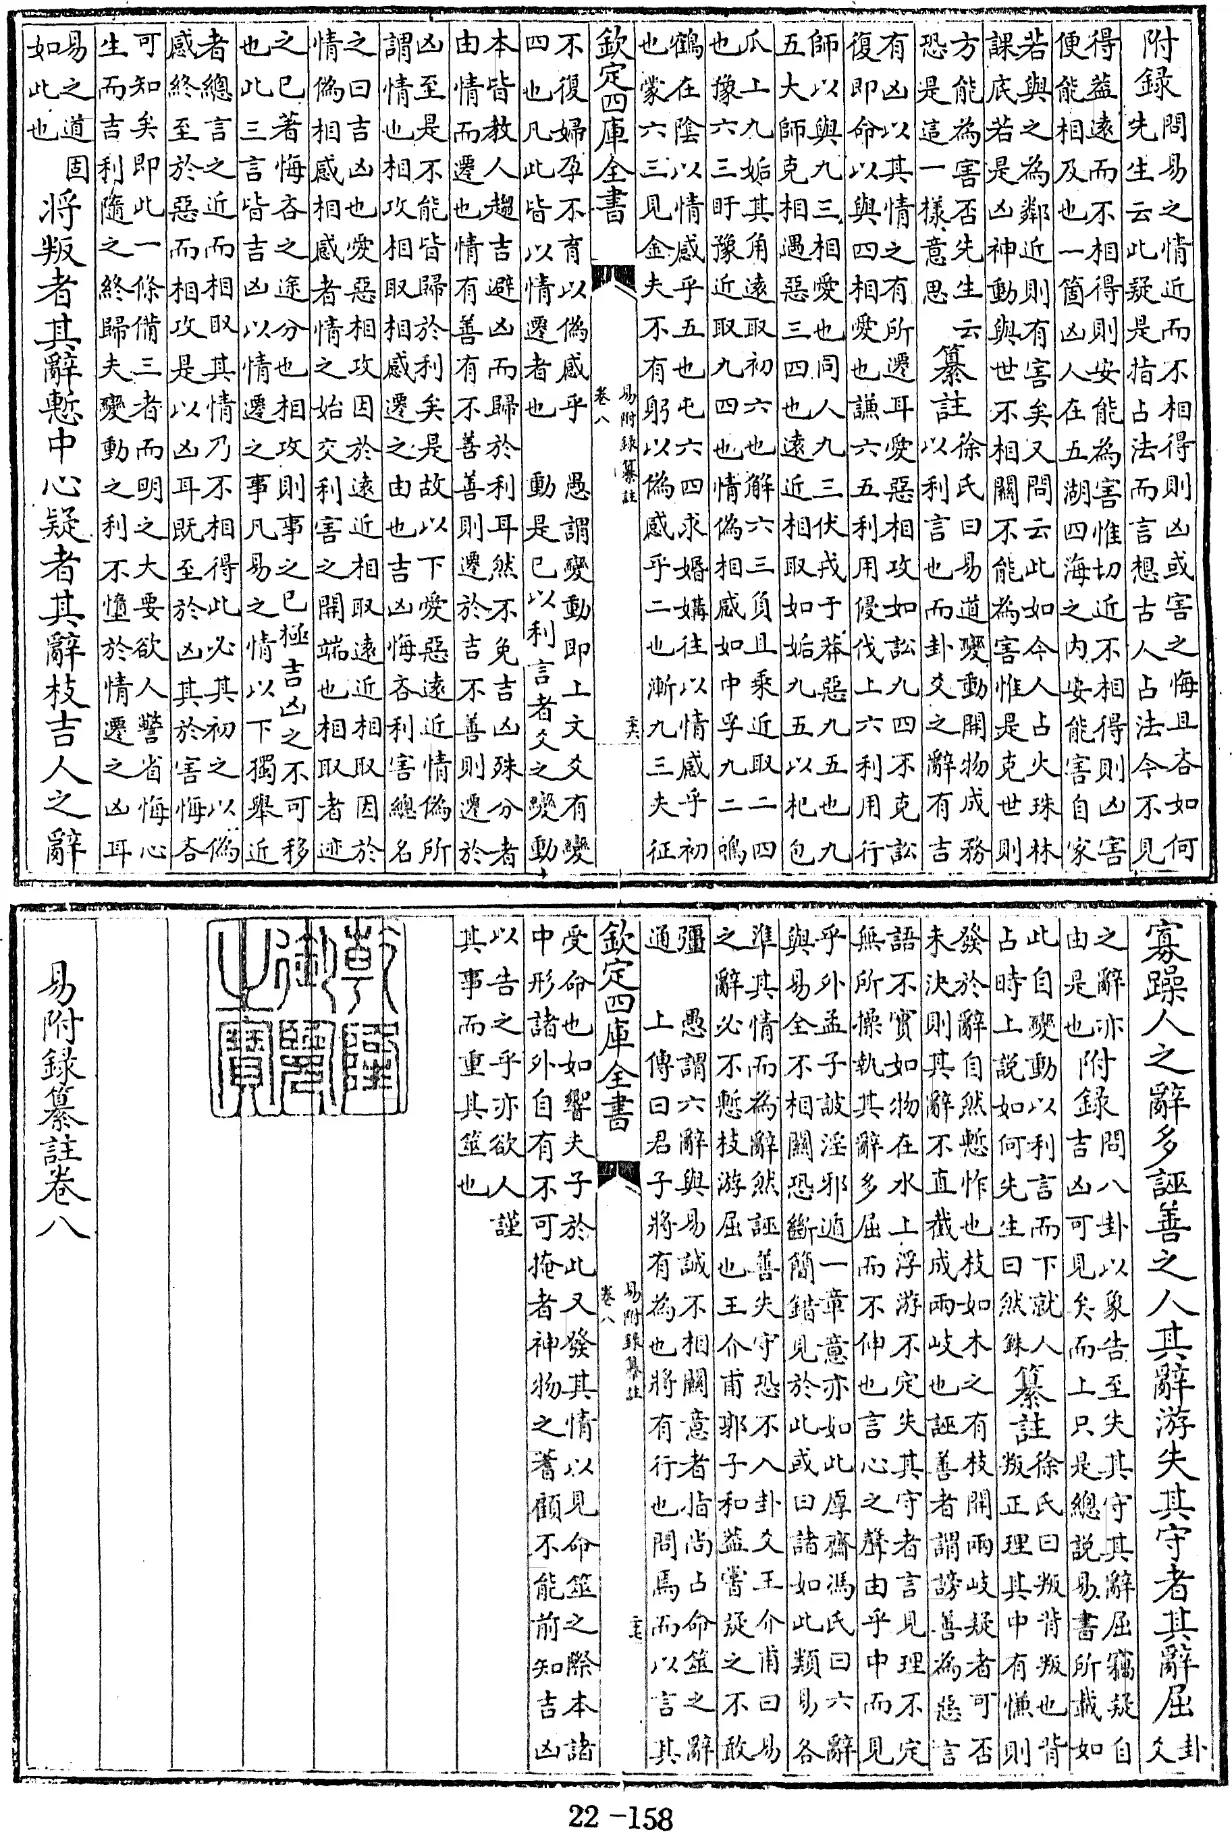 附錄
問易之情近而不相得則凶或害之悔且吝如何
先生云此疑是指占法而言想古人占法今不見
得益遠而不相得則安能為害惟切近不相得則凶害
便能相及也一箇凶人在五湖四海之内安能害自家
若與之為鄰近則有害矣又問云此如今人占火珠林
課底若是凶神動與世不相關不能為害惟是克世則
方能為害否先生云
恐是這一樣意思
纂註
徐氏曰易道變動開物成務
以利言也而卦爻之辭有吉
有凶以其情之有所遷耳愛惡相攻如訟九四不克訟
復即命以與四相愛也謙六五利用侵伐上六利用行
師以與九三相愛也同人九三伏戎于莽惡九五也九
五大師克相遇惡三四也遠近相取如姤九五以杞包
瓜上九姤其角遠取初六也解六三負且乘近取二四
也豫六三盱豫近取九四也情偽相感如中孚九二鳴
鶴在陰以情感乎五也屯六四求婚媾往以情感乎初
也蒙六三見金夫不有躬以偽感乎二也漸九三夫征
欽定四庫全書
易附錄纂註
卷八
二十六
不復婦孕不育以偽感乎
四也凡此皆以情遷者也
愚謂變動即上文爻有變
動是已以利言者爻之變動
本皆教人趨吉避凶而歸於利耳然不免吉凶殊分者
由情而遷也情有善有不善善則遷於吉不善則遷於
凶至是不能皆歸於利矣是故以下愛惡遠近情偽所
謂情也相攻相取相感遷之由也吉凶悔吝利害總名
之曰吉凶也愛惡相攻因於遠近相取遠近相取因於
情偽相感相感者情之始交利害之開端也相取者迹
之已著悔吝之途分也相攻則事之已極吉凶之不可移
也此三言皆吉凶以情遷之事凡易之情以下獨舉近
者總言之近而相取其情乃不相得此必其初之以偽
感終至於惡而相攻是以凶耳既至於凶其於害悔吝
可知矣即此一條備三者而明之大要欲人警省悔心
生而吉利隨之終歸夫變動之利不憧於情遷之凶耳
易之道固
如此也
將叛者其辭慙中心疑者其辭枝吉人之辭
寡躁人之辭多誣善之人其辭游失其守者其辭屈
卦
爻
之辭亦
由是也
附錄
問八卦以象告至失其守其辭屈竊疑自
吉凶可見矣而上只是總說易書所載如
此自變動以利言而下就人
占時上說如何先生曰然銖
纂註
徐氏曰叛背叛也背
叛正理其中有慊則
發於辭自然慙怍也枝如木之有枝開兩岐疑者可否
未決則其辭不直截成兩岐也誣善者謂謗善為惡言
語不實如物在水上浮游不定失其守者言見理不定
無所操執其辭多屈而不伸也言心之聲由乎中而見
乎外孟子詖淫邪遁一章意亦如此厚齋馮氏曰六辭
與易全不相關恐斷簡錯見於此或曰諸如此類易各
準其情而為辭然誣善失守恐不入卦爻王介甫曰易
之辭必不慙枝游屈也王介甫郭子和蓋嘗疑之不敢
彊
通
愚謂六辭與易誠不相關意者指尚占命筮之辭
上傳曰君子將有為也將有行也問焉而以言其
欽定四庫全書
易附錄纂註
卷八
二十七
受命也如響夫子於此又發其情以見命筮之際本諸
中形諸外自有不可掩者神物之蓍顧不能前知吉凶
以告之乎亦欲人謹
其事而重其筮也
乾隆御覽之寶
易附錄纂註卷八
22-158